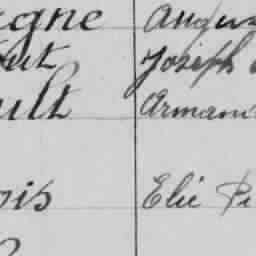 agne Augus
out Joseph
ult Armand
ois Elie Pi